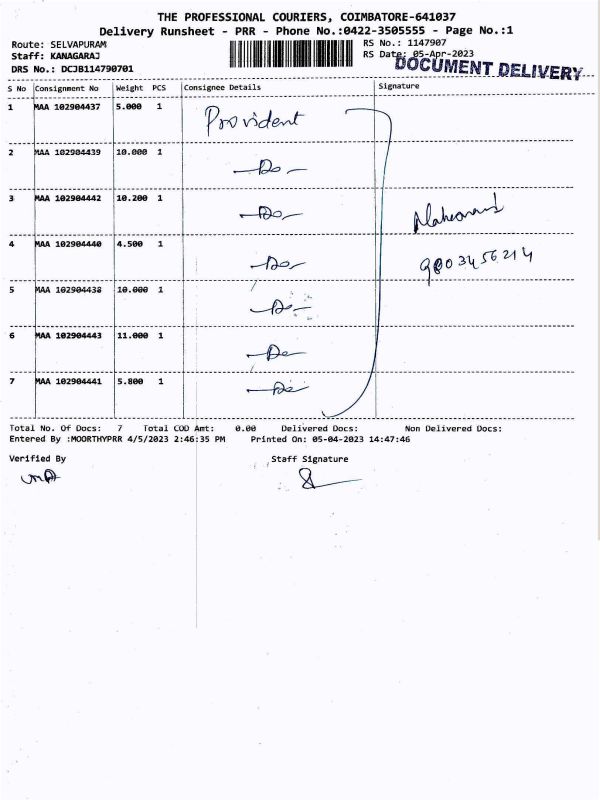 THE PROFESSIONAL COURIERS, COIMBATORE-641037
Delivery Runsheet - PRR - Phone No.:0422-3505555 - Page No.:1
Route: SELVAPURAM
Staff: KANAGARAJ
DRS No.: DCJB114790701
RS No.: 1147907
RS Date: 05-Apr-2023
DOCUMENT DELIVERY
S No Consignment No Weight PCS Consignee Details Signature
1 MAA 102904437 5.000 1 Provident
2 MAA 102904439 10.000 1 -Do-
3 MAA 102904442 10.200 1 -Do-
4 MAA 102904440 4.500 1 -Do-
9003456214
5 MAA 102904438 10.000 1 -Do-
6 MAA 102904443 11.000 1 -Do-
7 MAA 102904441 5.800 1 -Do-
Total No. Of Docs: 7 Total COD Amt: 0.00 Delivered Docs: Non Delivered Docs:
Entered By :MOORTHYPRR 4/5/2023 2:46:35 PM Printed On: 05-04-2023 14:47:46
Verified By Staff Signature